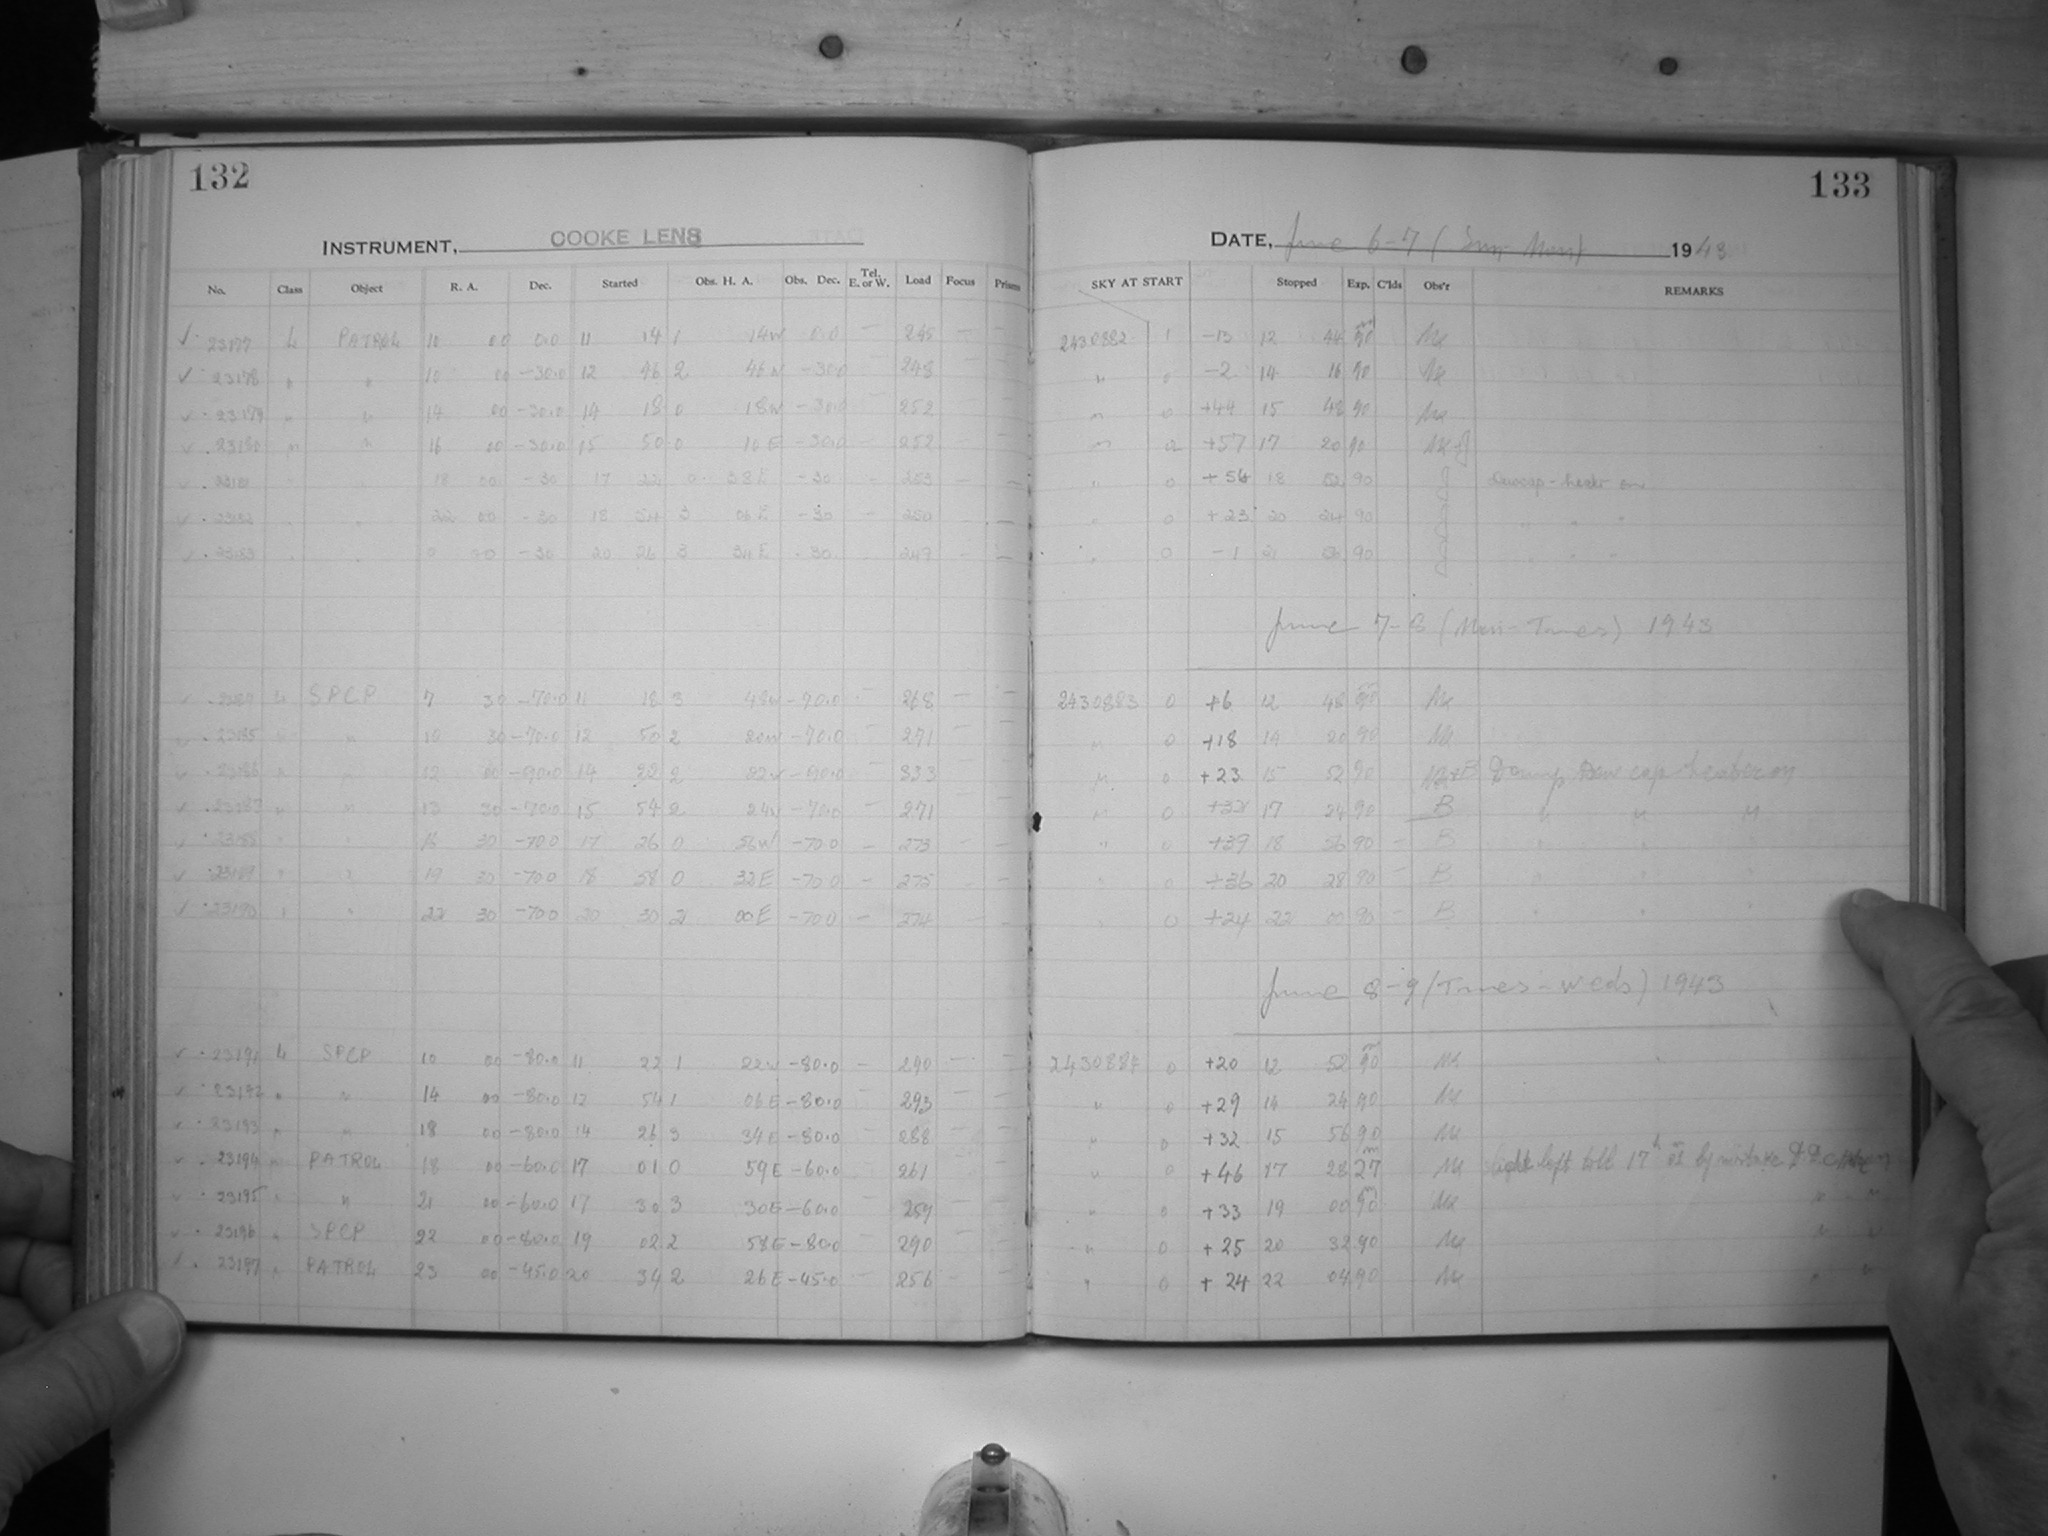 132
133
INSTRUMENT, COOKE LENS
DATE, June 6-7 (Sun-Mon) 1943
No. Class Object R. A. Dec. Started Obs. H. A. Obs. Dec. Tel. E. or W. Load Focus Prisms SKY AT START Stopped Exp. C'lds Obs'r REMARKS
✓ · 23177 L PATROL 10 00 0.0 11 14 1 14W 0.0 — 245 — — 2430882 1 -13 12 44 90
✓ · 23178 " " 10 00 -30.0 12 46 2 46W -30.0 — 248 — — " 0 -2 14 16 90
✓ · 23179 " " 14 00 -30.0 14 18 0 18W -30.0 — 252 — — " 0 +44 15 48 90
✓ · 23180 " " 16 00 -30.0 15 50 0 10E -30.0 — 252 — — " 0 +57 17 20 90
✓ · 23181 " " 18 00 -30 17 22 0 38E -30 — 253 — — " 0 +54 18 52 90 Dewcap-heater on
✓ · 23182 " " 22 00 -30 18 54 3 06E -30 — 250 — — " 0 +23 20 24 90 " " "
✓ · 23183 " " 0 00 -30 20 26 3 34E -30 — 247 — — " 0 -1 21 56 90 " " "
June 7-8 (Mon-Tues) 1943
✓ · 23184 L SPCP 7 30 -70.0 11 18 3 48W -70.0 — 268 — — 2430883 0 +6 12 48 90
✓ · 23185 " " 10 30 -70.0 12 50 2 20W -70.0 — 271 — — " 0 +18 14 20 90
✓ · 23186 " " 12 00 -90.0 14 22 2 22W -90.0 — 333 — — " 0 +23 15 52 90 Damp Dew cap heater on
✓ · 23187 " " 13 30 -70.0 15 54 2 24W -70.0 — 271 — — " 0 +32 17 24 90 B " " "
✓ · 23188 " " 16 30 -70.0 17 26 0 56W -70.0 — 273 — — " 0 +39 18 56 90 — B " " "
✓ · 23189 " " 19 30 -70.0 18 58 0 32E -70.0 — 275 — — " 0 +36 20 28 90 — B " " "
✓ · 23190 " " 22 30 -70.0 20 30 2 00E -70.0 — 274 — — " 0 +24 22 00 90 — B " " "
June 8-9 (Tues-Weds) 1943
✓ · 23191 L SPCP 10 00 -80.0 11 22 1 22W -80.0 — 290 — — 2430884 0 +20 12 52 90
✓ · 23192 " " 14 00 -80.0 12 54 1 06E -80.0 — 293 — — " 0 +29 14 24 90
✓ · 23193 " " 18 00 -80.0 14 26 3 34E -80.0 — 288 — — " 0 +32 15 56 90
✓ · 23194 " PATROL 18 00 -60.0 17 01 0 59E -60.0 — 261 — — " 0 +46 17 28 27 left till 17h 01 by mistake
✓ · 23195 " " 21 00 -60.0 17 30 3 30E -60.0 — 259 — — " 0 +33 19 00 90 " "
✓ · 23196 " SPCP 22 00 -80.0 19 02 2 58E -80.0 — 290 — — " 0 +25 20 32 90 " "
✓ · 23197 " PATROL 23 00 -45.0 20 34 2 26E -45.0 — 256 — — " 0 +24 22 04 90 " "